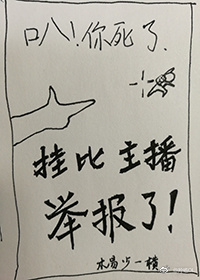 叭!你死了.
挂比主播
举报了!
一横